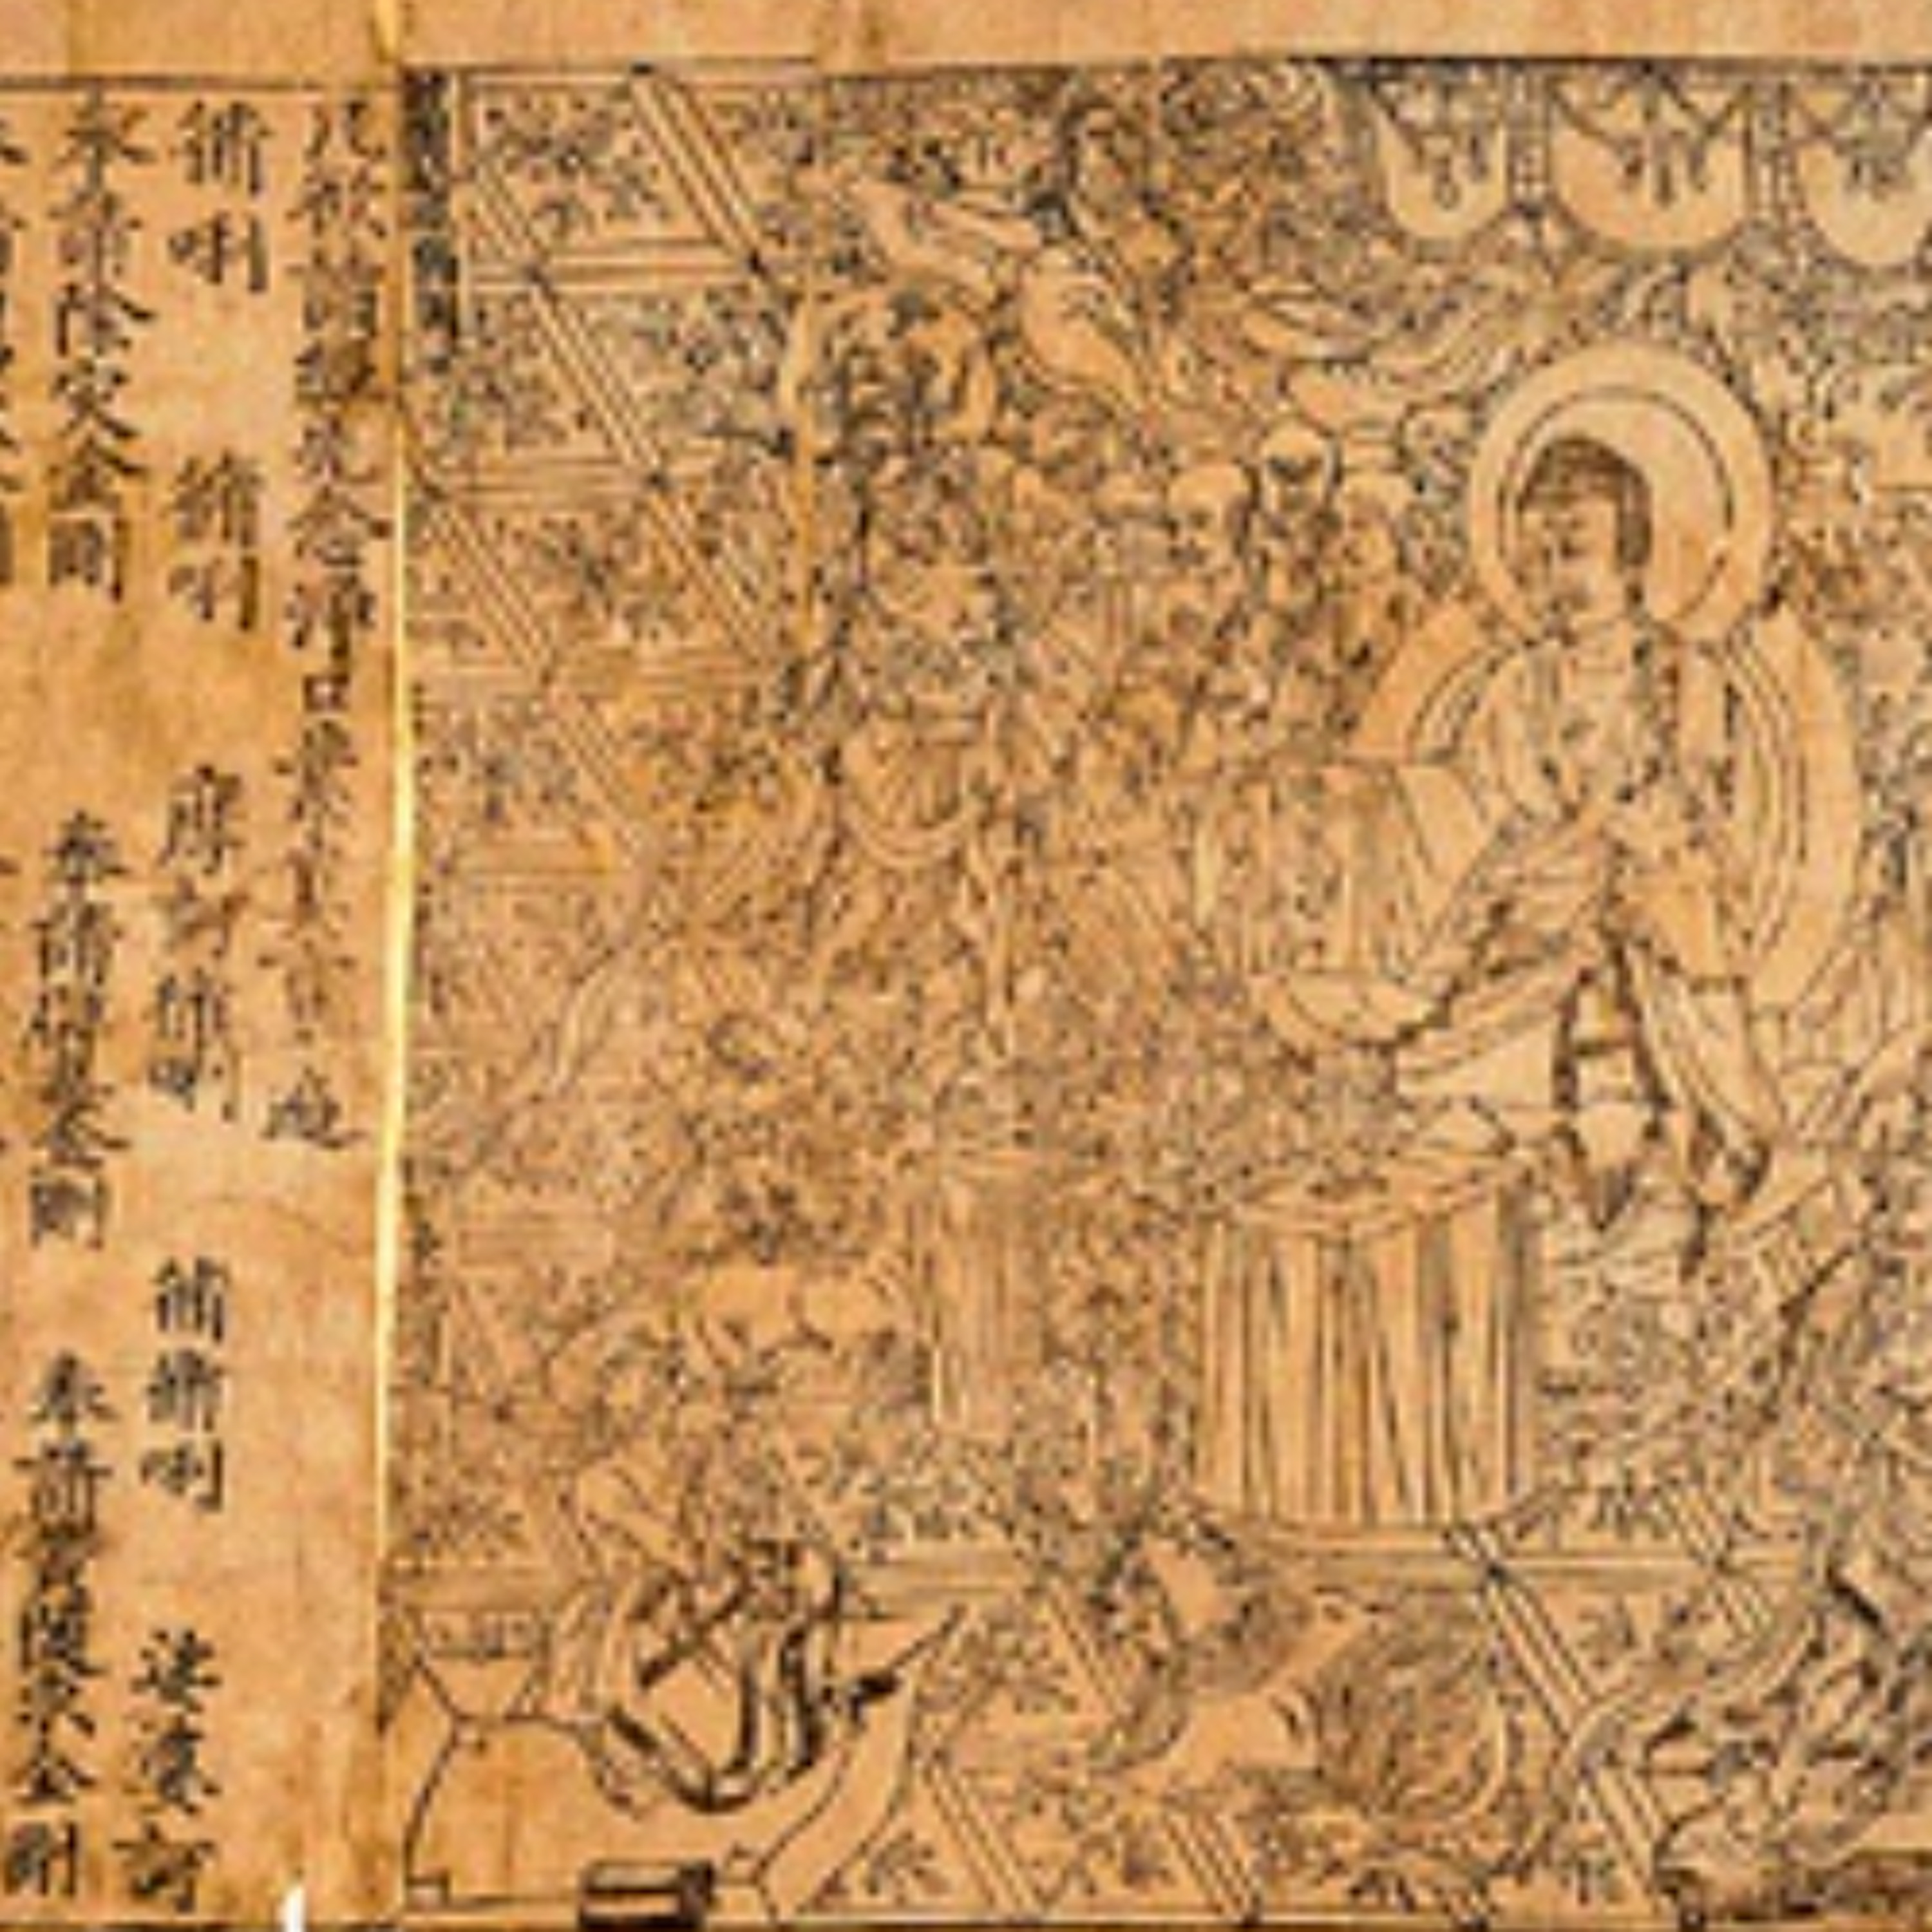 凡欲讀經先念淨口業真言一遍
脩唎 脩唎 摩訶脩唎 脩脩唎 娑婆訶
奉請除災金剛 奉請辟毒金剛 奉請黃隨求金剛